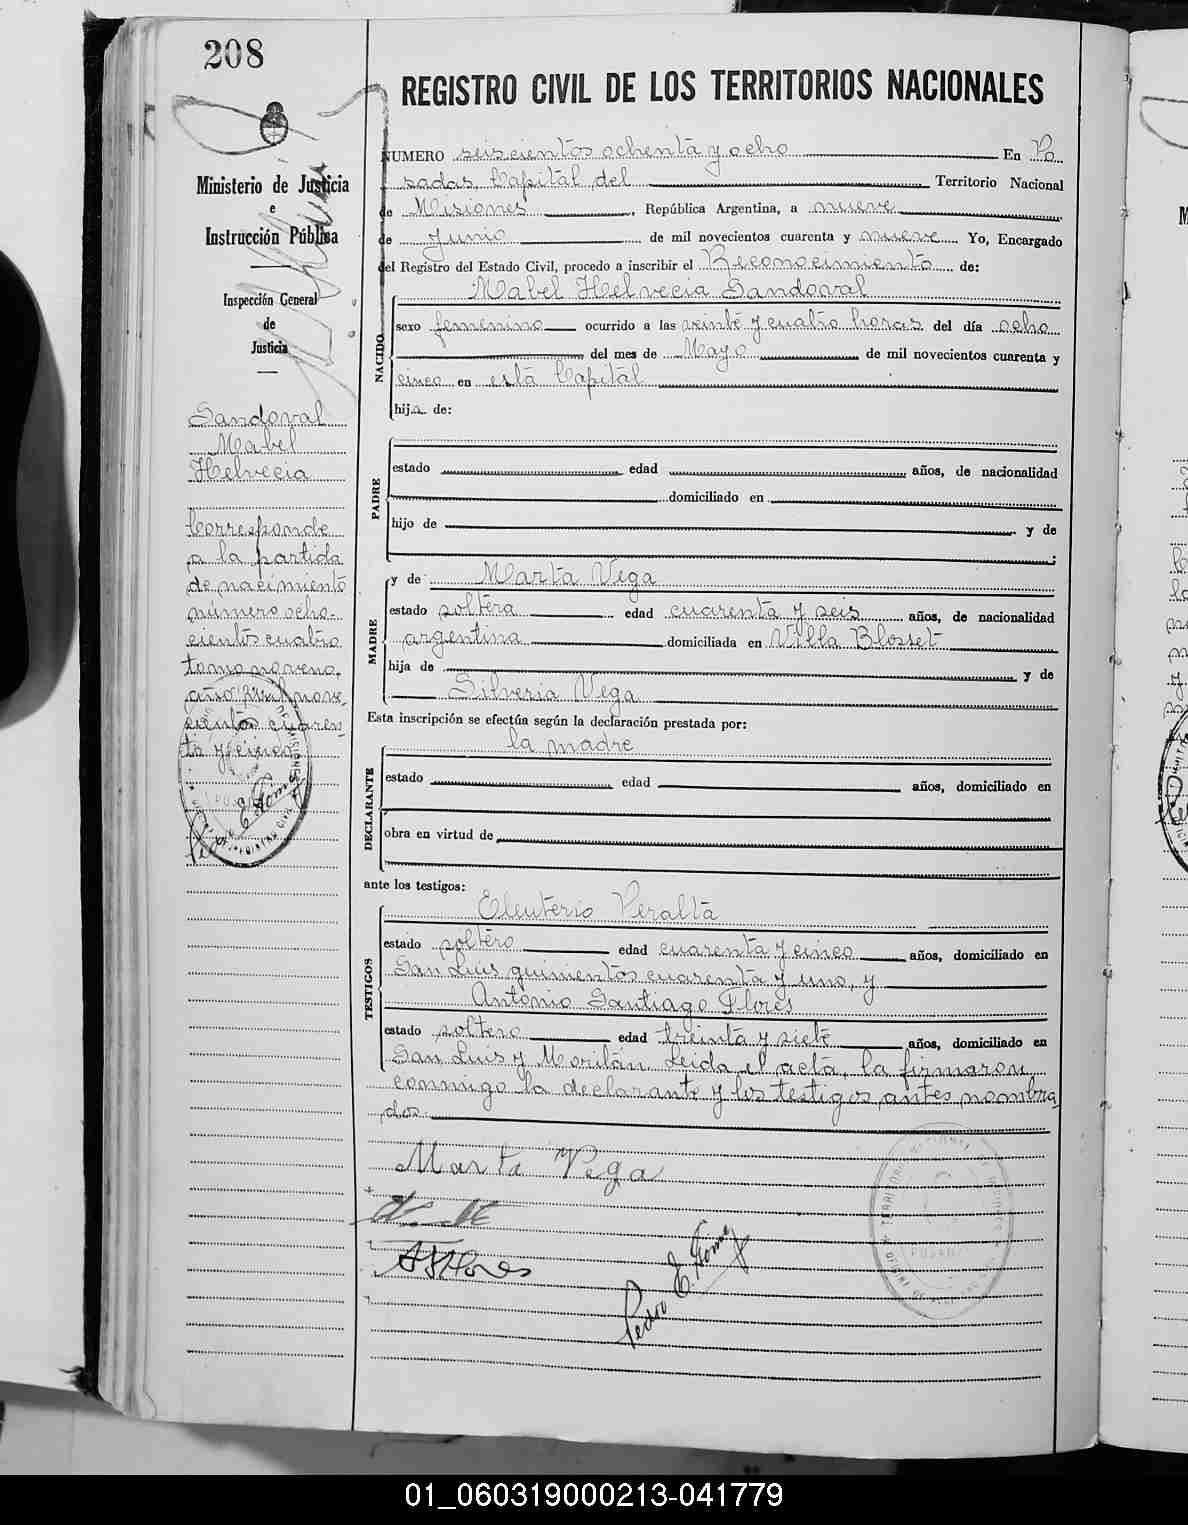 208
REGISTRO CIVIL DE LOS TERRITORIOS NACIONALES
NUMERO seiscientos ochenta y ocho En Po
sadas Capital del Territorio Nacional
de Misiones, República Argentina, a nueve
de Junio de mil novecientos cuarenta y nueve Yo, Encargado
del Registro del Estado Civil, procedo a inscribir el Reconocimiento de:
NACIDO
Mabel Helvecia Sandoval
sexo femenino ocurrido a las veinte y cuatro horas del día ocho
del mes de Mayo de mil novecientos cuarenta y
cinco en esta Capital
hija de:
PADRE
estado edad años, de nacionalidad
domiciliado en
hijo de y de
;
MADRE
y de Marta Vega
estado soltera edad cuarenta y seis años, de nacionalidad
argentina domiciliada en Villa Blosset
hija de y de
Silveria Vega
Esta inscripción se efectúa según la declaración prestada por:
DECLARANTE
la madre
estado edad años, domiciliado en
obra en virtud de
ante los testigos:
TESTIGOS
Eleuterio Peralta
estado soltero edad cuarenta y cinco años, domiciliado en
San Luis quinientos cuarenta y uno, y
Antonio Santiago Flores
estado soltero edad treinta y siete años, domiciliado en
San Luis y Moritán. Leida el acta, la firmaron
conmigo la declarante y los testigos antes nombra
dos.
Marta Vega
ASFlores
Pedro E. Gómez
Ministerio de Justicia
e
Instrucción Pública
Inspección General
de
Justicia
Sandoval
Mabel
Helvecia
Corresponde
a la partida
de nacimiento
número ocho-
cientos cuatro
tomo noveno,
año mil nove-
cientos cuaren-
ta y cinco
Pedro E. Gómez
01_060319000213-041779